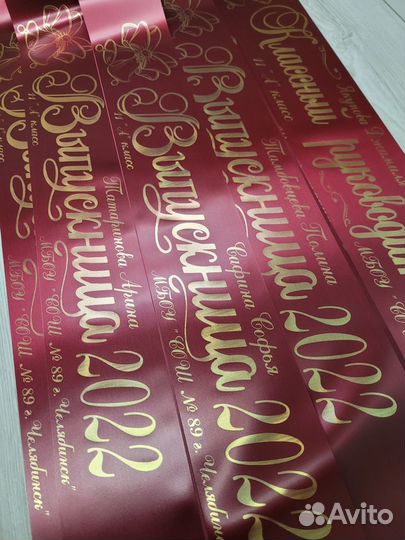 11 "А" класс
Выпускница 2022
Татаринова Арина
МБОУ "СОШ № 89 г. Челябинск"
11 "А" класс
Выпускница 2022
Сафина Софья
МБОУ "СОШ № 89 г. Челябинск"
11 "А" класс
Выпускница 2022
Полина
Классный руководи
МБОУ "СО
Avito